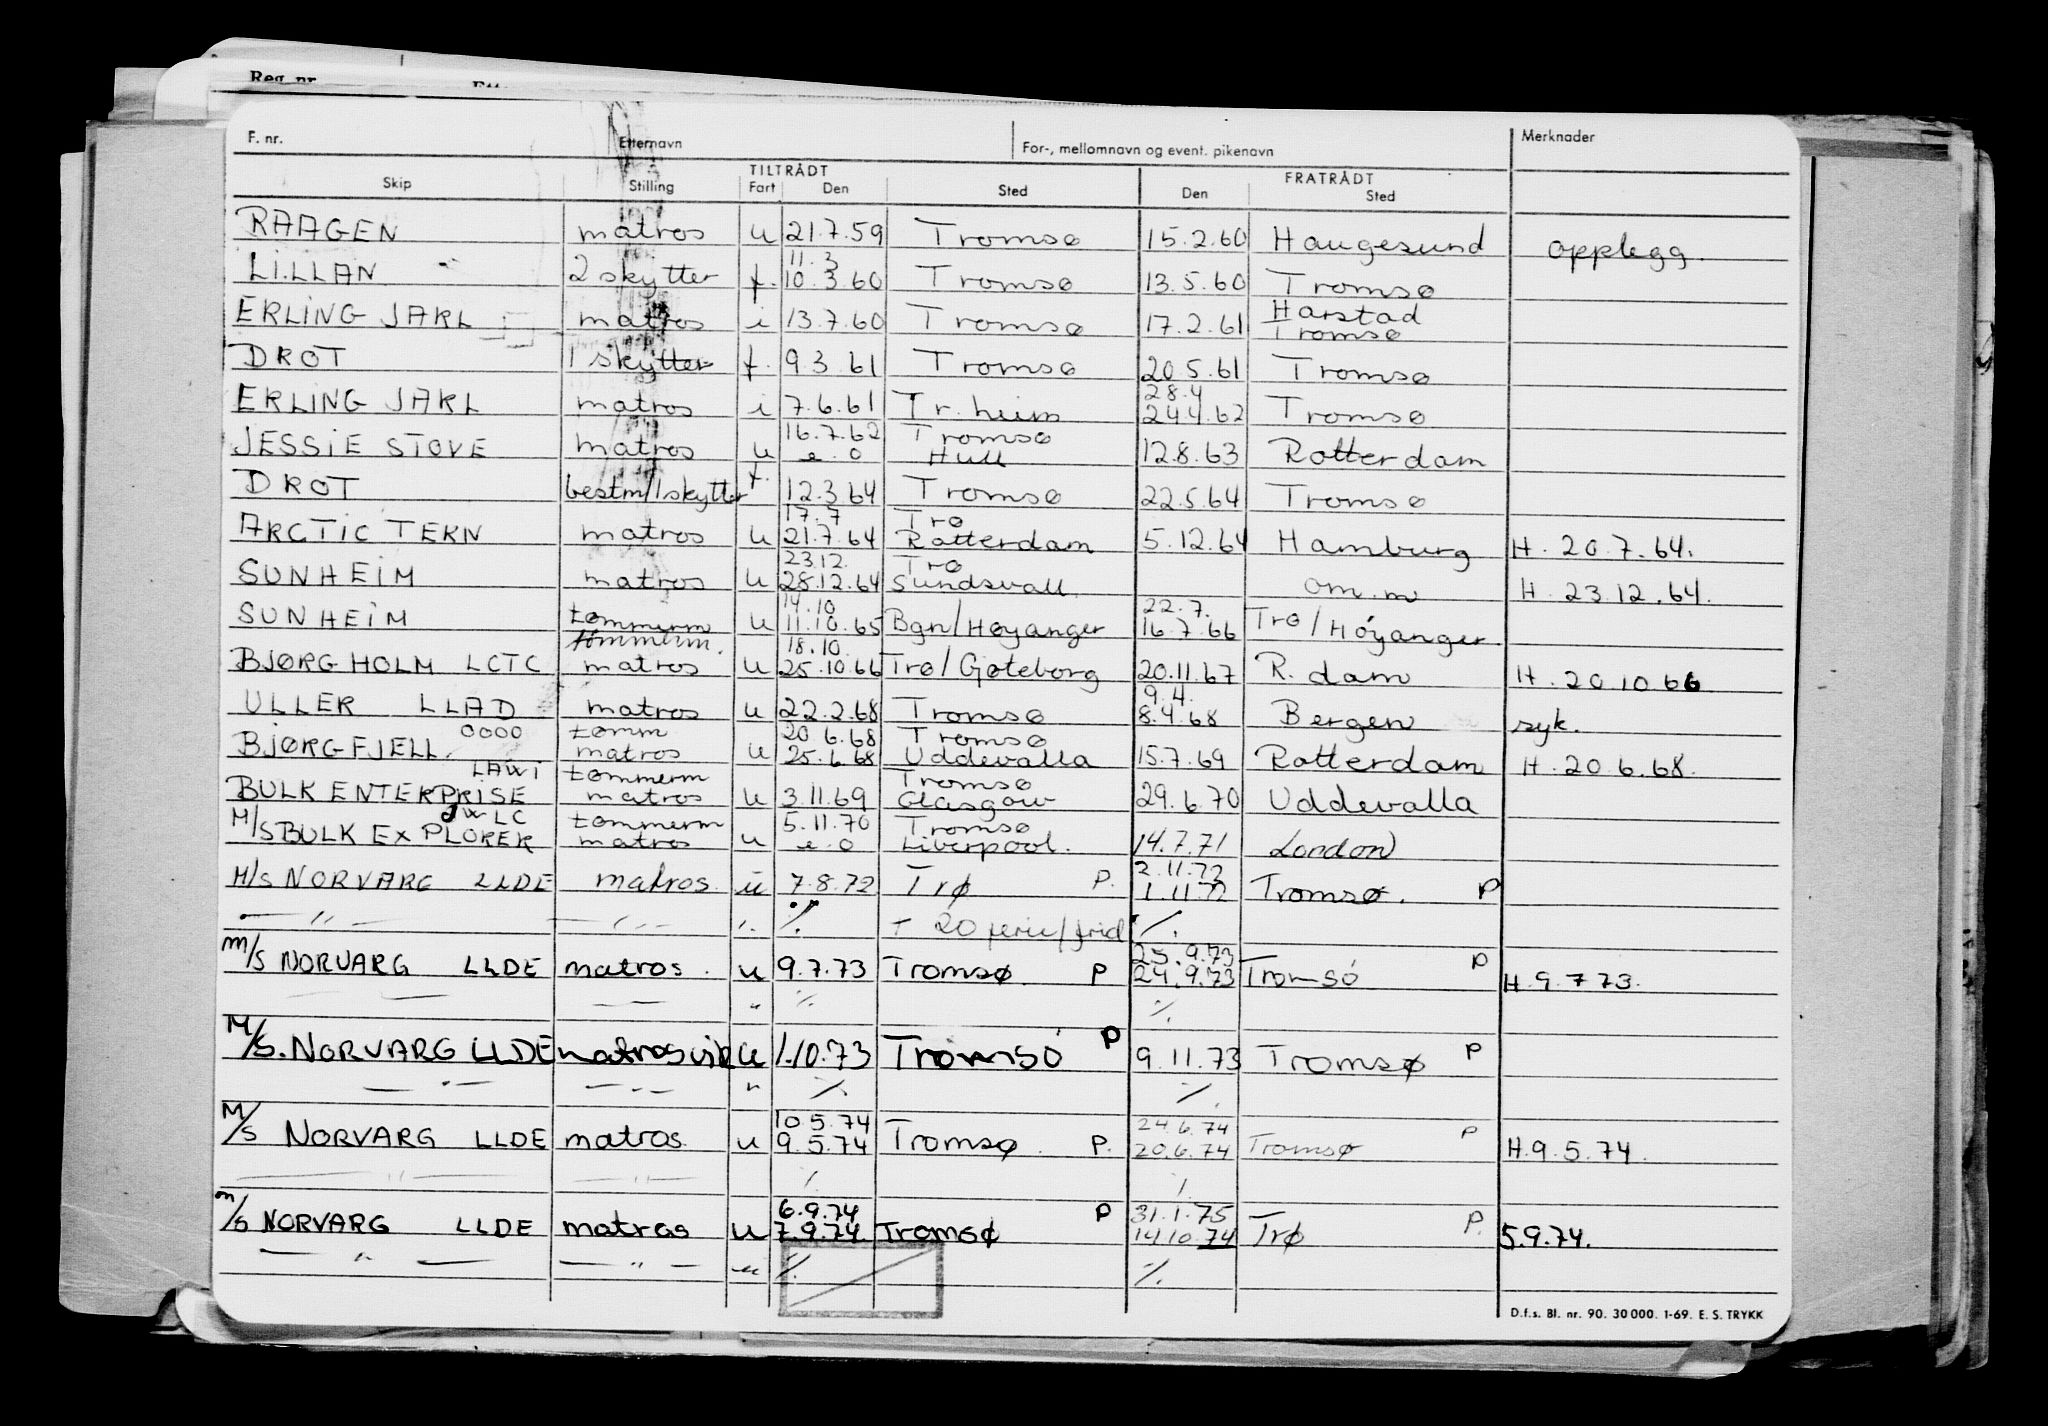 Reg. nr.
F. nr. Etternavn For-, mellomnavn og event. pikenavn Merknader
TILTRÅDT FRATRÅDT
Skip Stilling Fart Den Sted Den Sted
RAAGEN matros u 21.7.59 Tromsø 15.2.60 Haugesund opplegg.
11.3
LILLAN 2 skytter f. 10.3.60 Tromsø 13.5.60 Tromsø
Harstad
ERLING JARL matros i 13.7.60 Tromsø 17.2.61 Tromsø
DROT 1 skytter f. 9.3.61 Tromsø 20.5.61 Tromsø
28.4
ERLING JARL matros i 7.6.61 Tr.heim 24.4.62 Tromsø
16.7.62 Tromsø
JESSIE STOVE matros u e.o Hull 12.8.63 Rotterdam
DROT bestm/1skytter f. 12.3.64 Tromsø 22.5.64 Tromsø
17.7 Trø
ARCTIC TERN matros u 21.7.64 Rotterdam 5.12.64 Hamburg H. 20.7.64.
23.12. Trø
SUNHEIM matros u 28.12.64 Sundsvall. om.m H. 23.12.64.
14.10 22.7.
SUNHEIM tømmerm u 11.10.65 Bgn/Høyanger 16.7.66 Trø/Høyanger
tømmerm. 18.10.
BJØRGHOLM LCTC matros u 25.10.66 Trø/Gøteborg 20.11.67 R.dam H. 20 10 66
9.4.
ULLER LLAD matros u 22.2.68 Tromsø 8.4.68 Bergen syk.
0000 tømm 20 6.68 Tromsø
BJØRGFJELL. matros u 25.6.68 Uddevalla 15.7.69 Rotterdam H. 20 6.68.
LAWI tømmerm Tromsø
BULK ENTERPRISE matros u 3.11.69 Glasgow 29.6.70 Uddevalla
JWLC tømmerm 5.11.70 Tromsø
M/S BULK EXPLORER matros u e.o Liverpool. 14.7.71 London
2.11.72
M/S NORVARG LLDE matros. u 7.8.72 Trø P. 1.11.72 Tromsø. P
— " — — " — ". %. + 20 ferie/frid %.
25.9.73
m/s NORVARG LLDE matros. u 9.7.73 Tromsø. P 24.9.73 Tromsø P H.9.7 73.
— — — — " %. %.
M/S. NORVARG LLDE matrosvik u 1.10.73 Tromsø P 9.11.73 Tromsø P
— " — — " — " %. %.
10 5.74 24.6.74
M/S NORVARG LLDE matros. u 9.5.74 Tromsø. P. 20.6.74 Tromsø P H.9.5.74.
— " — — " — %. %.
6.9.74 31.1.75
m/s NORVARG LLDE matros u 7.9.74. Tromsø P 14.10.74 Trø P. 5.9.74.
— " — — " — " %. %.
D.f.s. Bl. nr. 90. 30 000. 1-69. E. S. TRYKK